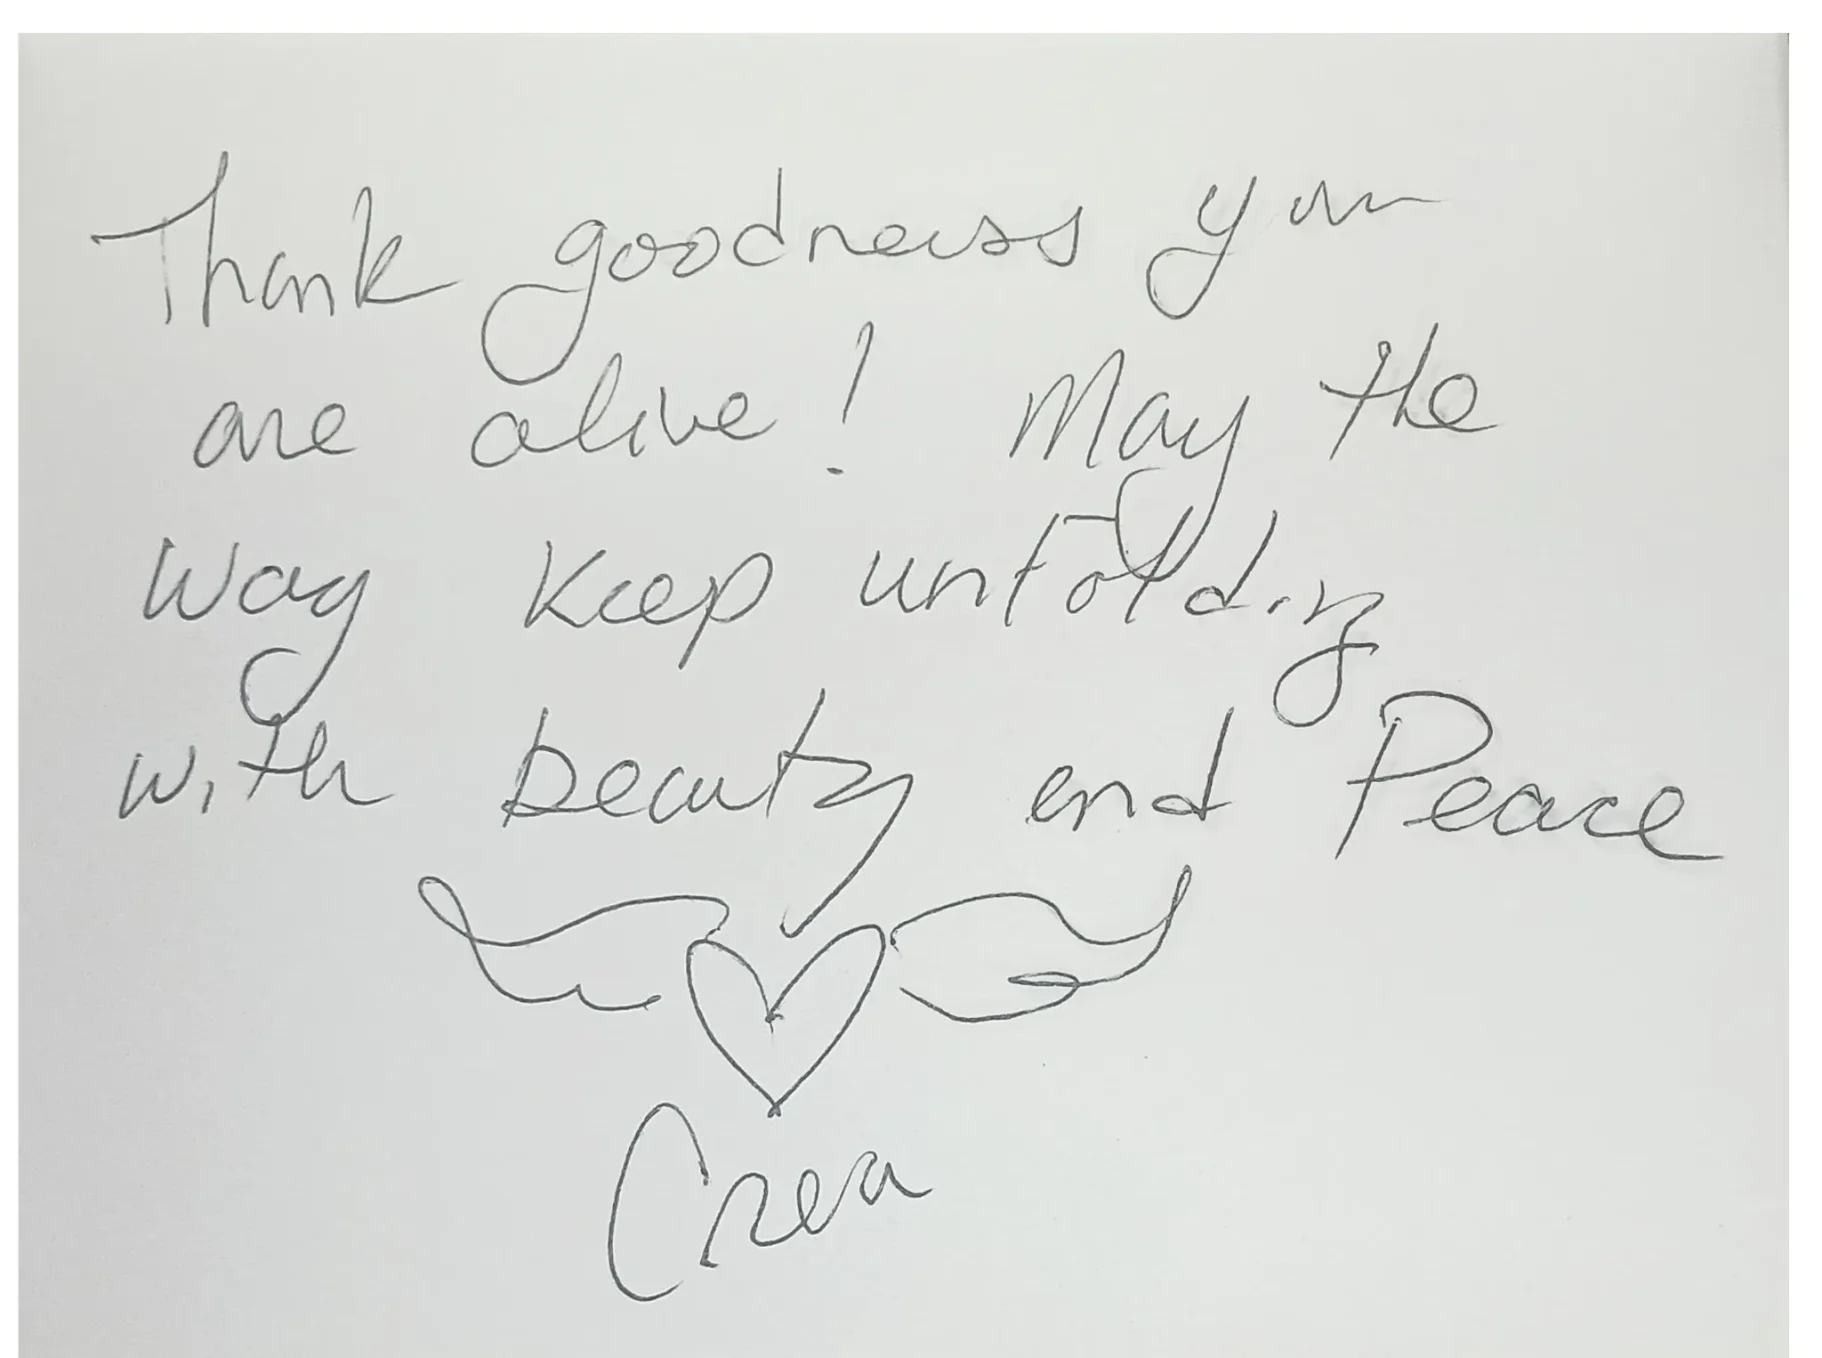 Thank goodness you
are alive! May the
way keep unfolding
with beauty and Peace
Crea